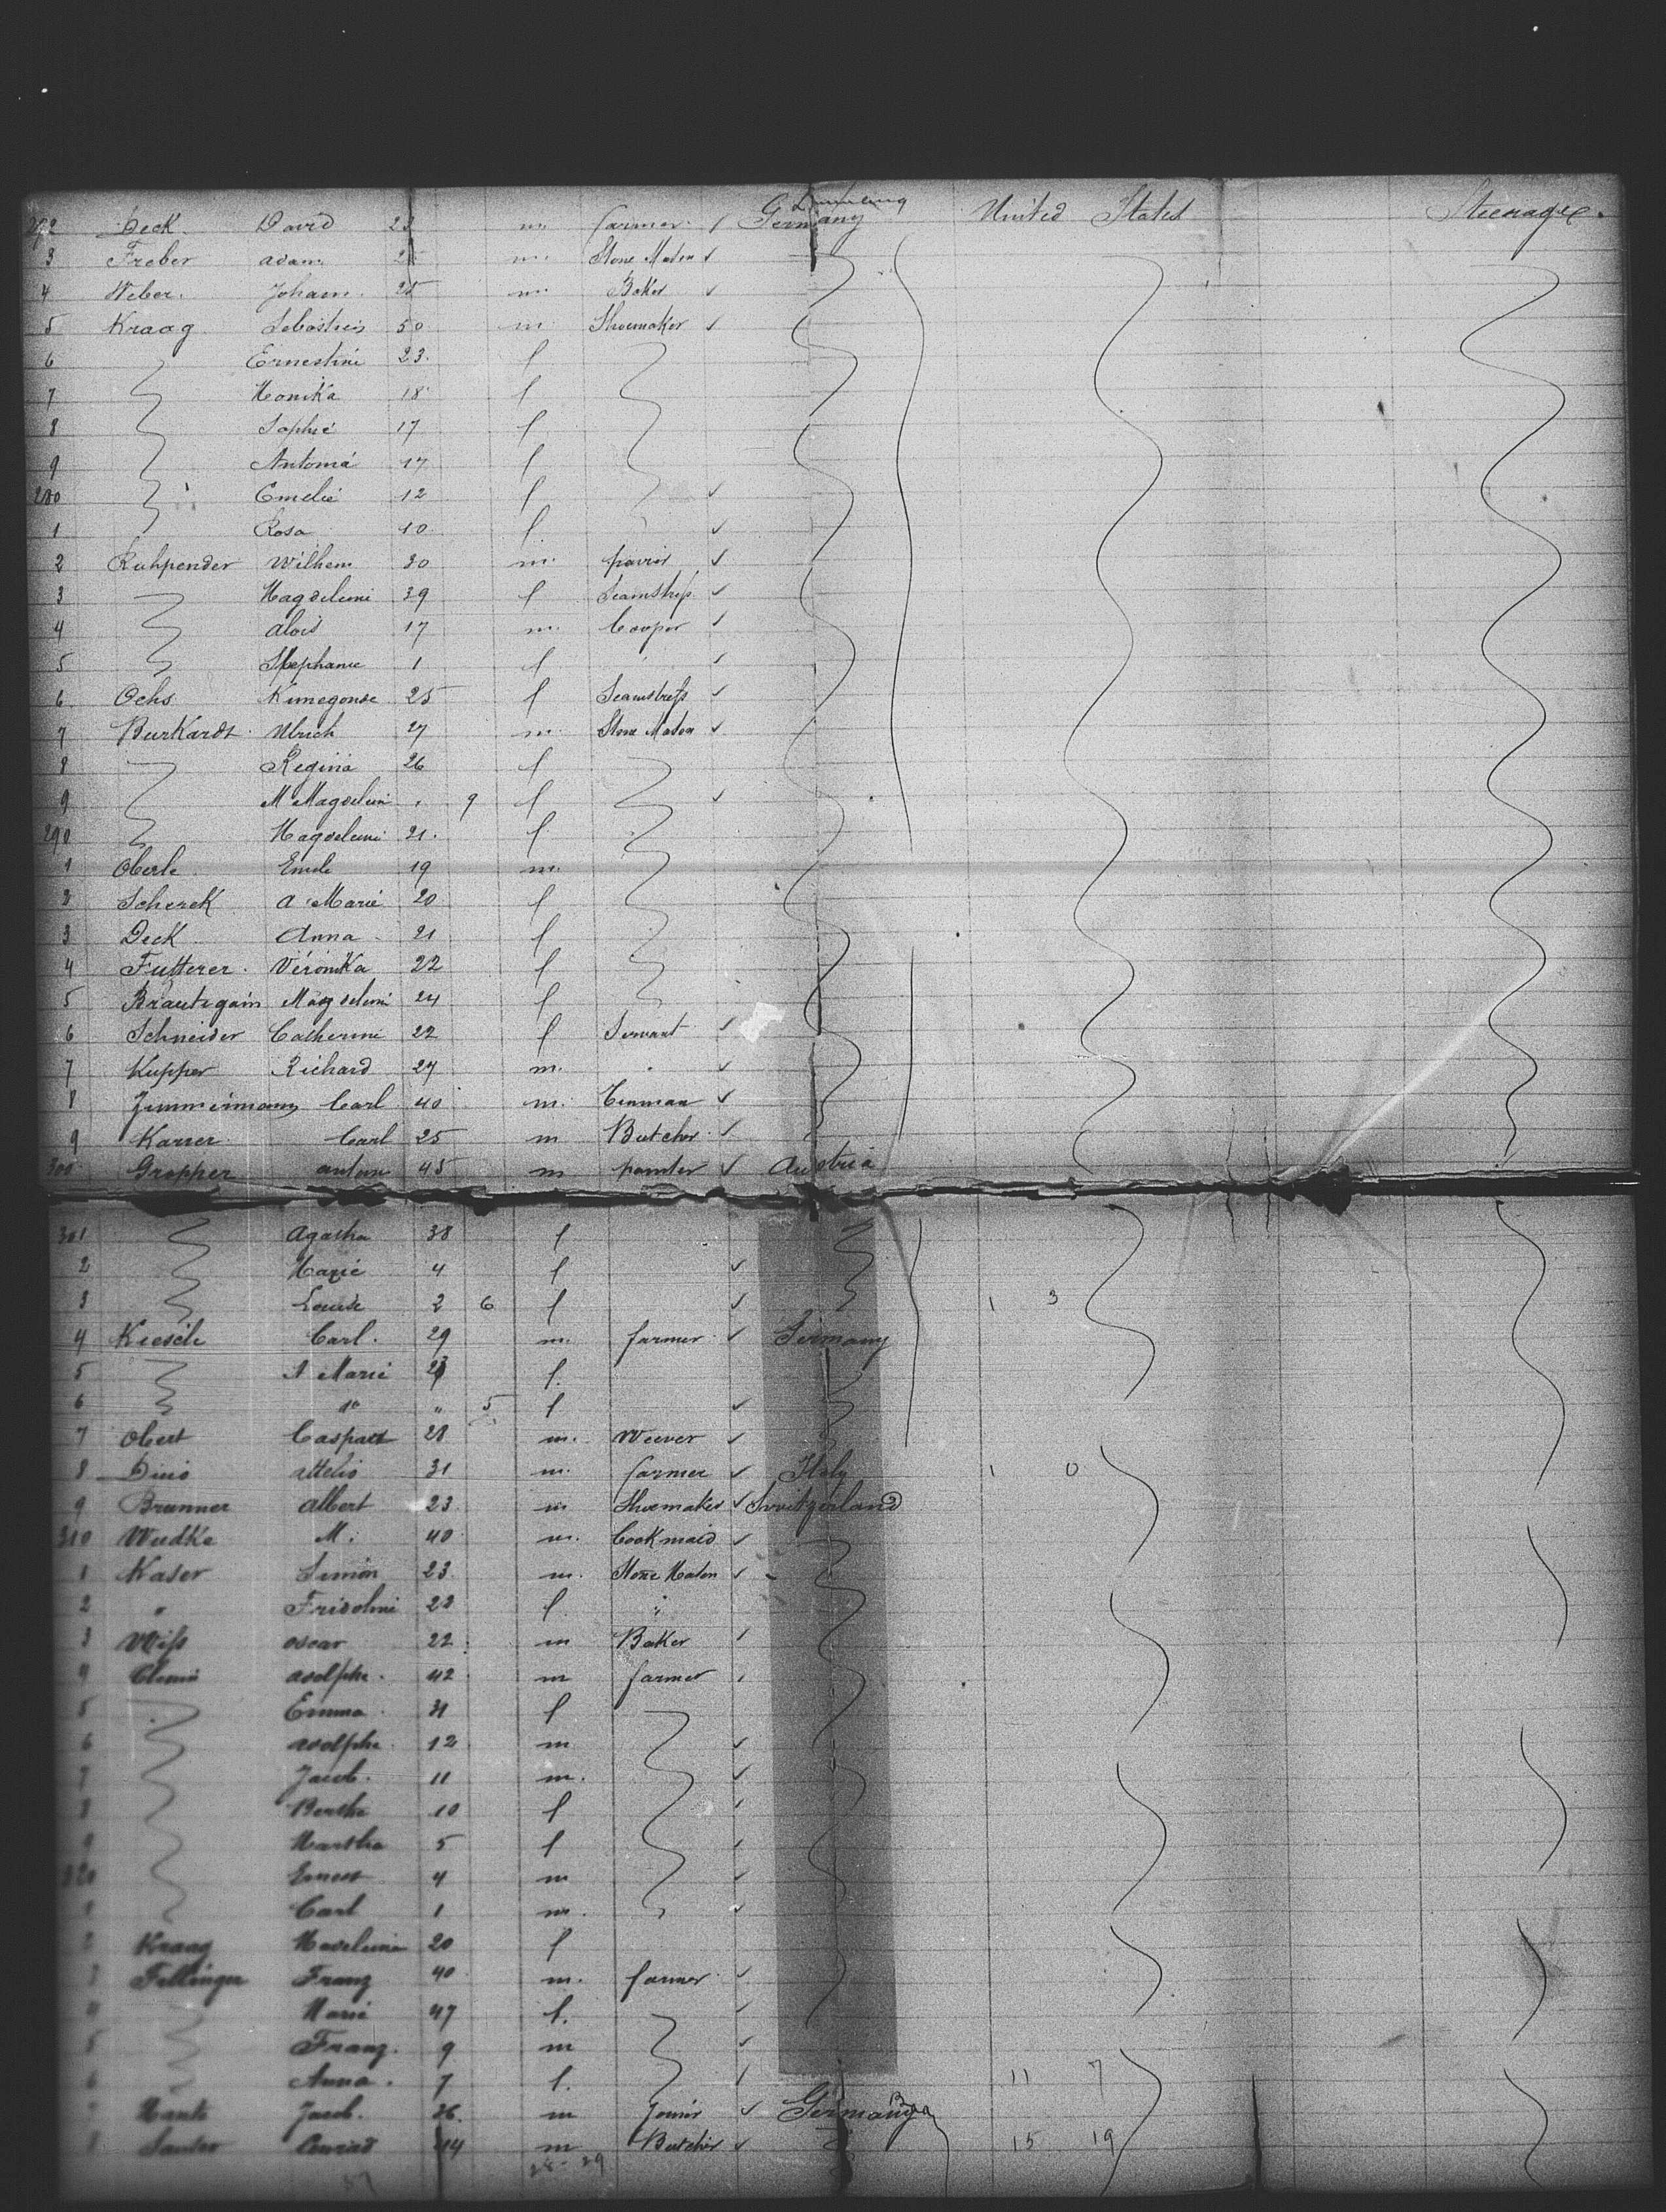 Deck David 23 m. farmer ✓ Germany United States Steerage.
3 Freber adam m. Stone Mason ✓
4 Weber. Johann. 25 m. Baker ✓
5 Kraag 50 m Shoemaker ✓
6 Ernestine 23. f
7 Monika 18 f
8 Sophie 17 f
9 Antonia 17 f
280 Emelie 12 f ✓
1 Rosa 10 f. ✓
2 Ruhpender Wilhem 30 m. ✓
3 Magdeleine 39 f Seamstress ✓
4 alois 17 m. Cooper ✓
5 Stephanie 1 f ✓
6 Ochs Kunegonde 25 f Seamstress ✓
7 Burkardt Ulrich 27 m. Stone Mason ✓
8 Regina 26 f
9 M Magdeleine 9 f ✓
290 Magdeleine 21. f.
1 Oberle Emile 19 m.
2 Scherck a Marie 20 f
3 Deck Anna 21 f
4 Futterer. Véronika 22 f
5 Brautigam Magdeleine 24 f
6 Schneider Catherine 22 f Servant ✓
7 Kupper Richard 27 m. ✓
8 Zimmermann Carl 40 m. Tinman ✓
9 Karrer Carl 25 m Butcher ✓
300 Gropper anton 45 m painter ✓ Austria
301 Agatha 38 f
2 Marie 4 f ✓
3 Louise 2 6 f ✓ 1 3
4 Kiesele Carl. 29 m. farmer ✓ Germany
5 A Marie f.
6 do " 5 f ✓
7 Obert Caspar 28 m. Weever ✓
8 Dino attelio 31 m. farmer ✓ Italy 1 0
9 Brunner albert 23 m Shoemaker ✓ Switzerland
310 Wudke M. 40 m. Cookmaid ✓
1 Kaser Simon 23. m. Stone Mason ✓
2 " Fridoline 22 f. "
3 Wiss oscar 22 m Baker
4 adolphe. 42 m farmer
5 Emma 31 f
6 adolphe. 12 m ✓
7 Jacob. 11 m. ✓
8 Bertha 10 f
9 Martha 5 f
320 Ernest 4 m ✓
1 Carl 1 m. ✓
2 Kraag Madeleine 20 f
3 Fellinger Franz 40 m. farmer ✓
4 Marie 47 f. ✓
5 Franz. 9 m ✓
6 Anna. 7 f. 11 7
Jacob. 26. m ✓ Germany
Conrad m Butcher ✓ 15 19